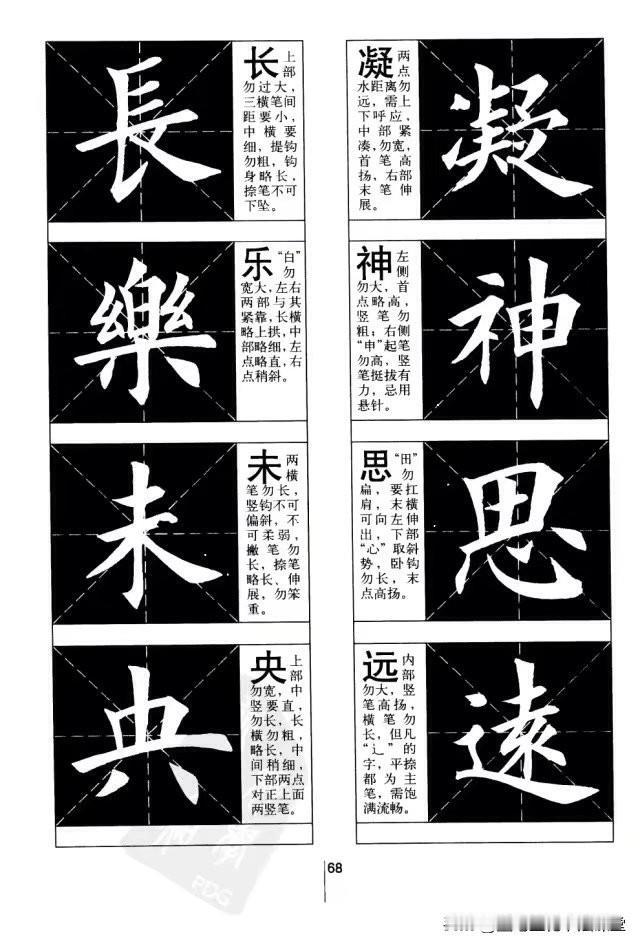 長
长 上部
勿过大，
三横笔间
距要小，
中横要
细，提钩
勿粗，钩
身略长，
捺笔不可
下坠。
樂
乐 “白”勿
宽大，左右
两部与其
紧靠，长横
略上拱，中
部略细，左
点略直，右
点稍斜。
未
未 两横
笔勿长，
竖钩不可
偏斜，不
可柔弱，
撇笔勿
长，捺笔
略长、伸
展，勿笨
重。
典
央 上部
勿宽，中
竖要直，
勿长，长
横勿粗，
略长，中
间稍细，
下部两点
对正上面
两竖笔。
凝
凝 两点
水距离勿
远，需上
下呼应，
中部紧
凑，勿宽，
首笔高
扬，右部
末笔伸
展。
神
神 左侧
勿大，首
点略高，
竖笔勿
粗；右侧
“申”起笔
勿高，竖
笔挺拔有
力，忌用
悬针。
思
思 “田”勿
扁，要扛
肩，末横
可向左伸
出，下部
“心”取斜
势，卧钩
勿长，末
点高扬。
遠
远 内部
勿大，竖
笔高扬，
横笔勿
长，但凡
“辶”的
字，平捺
都为主
笔，需饱
满流畅。
68
PDG